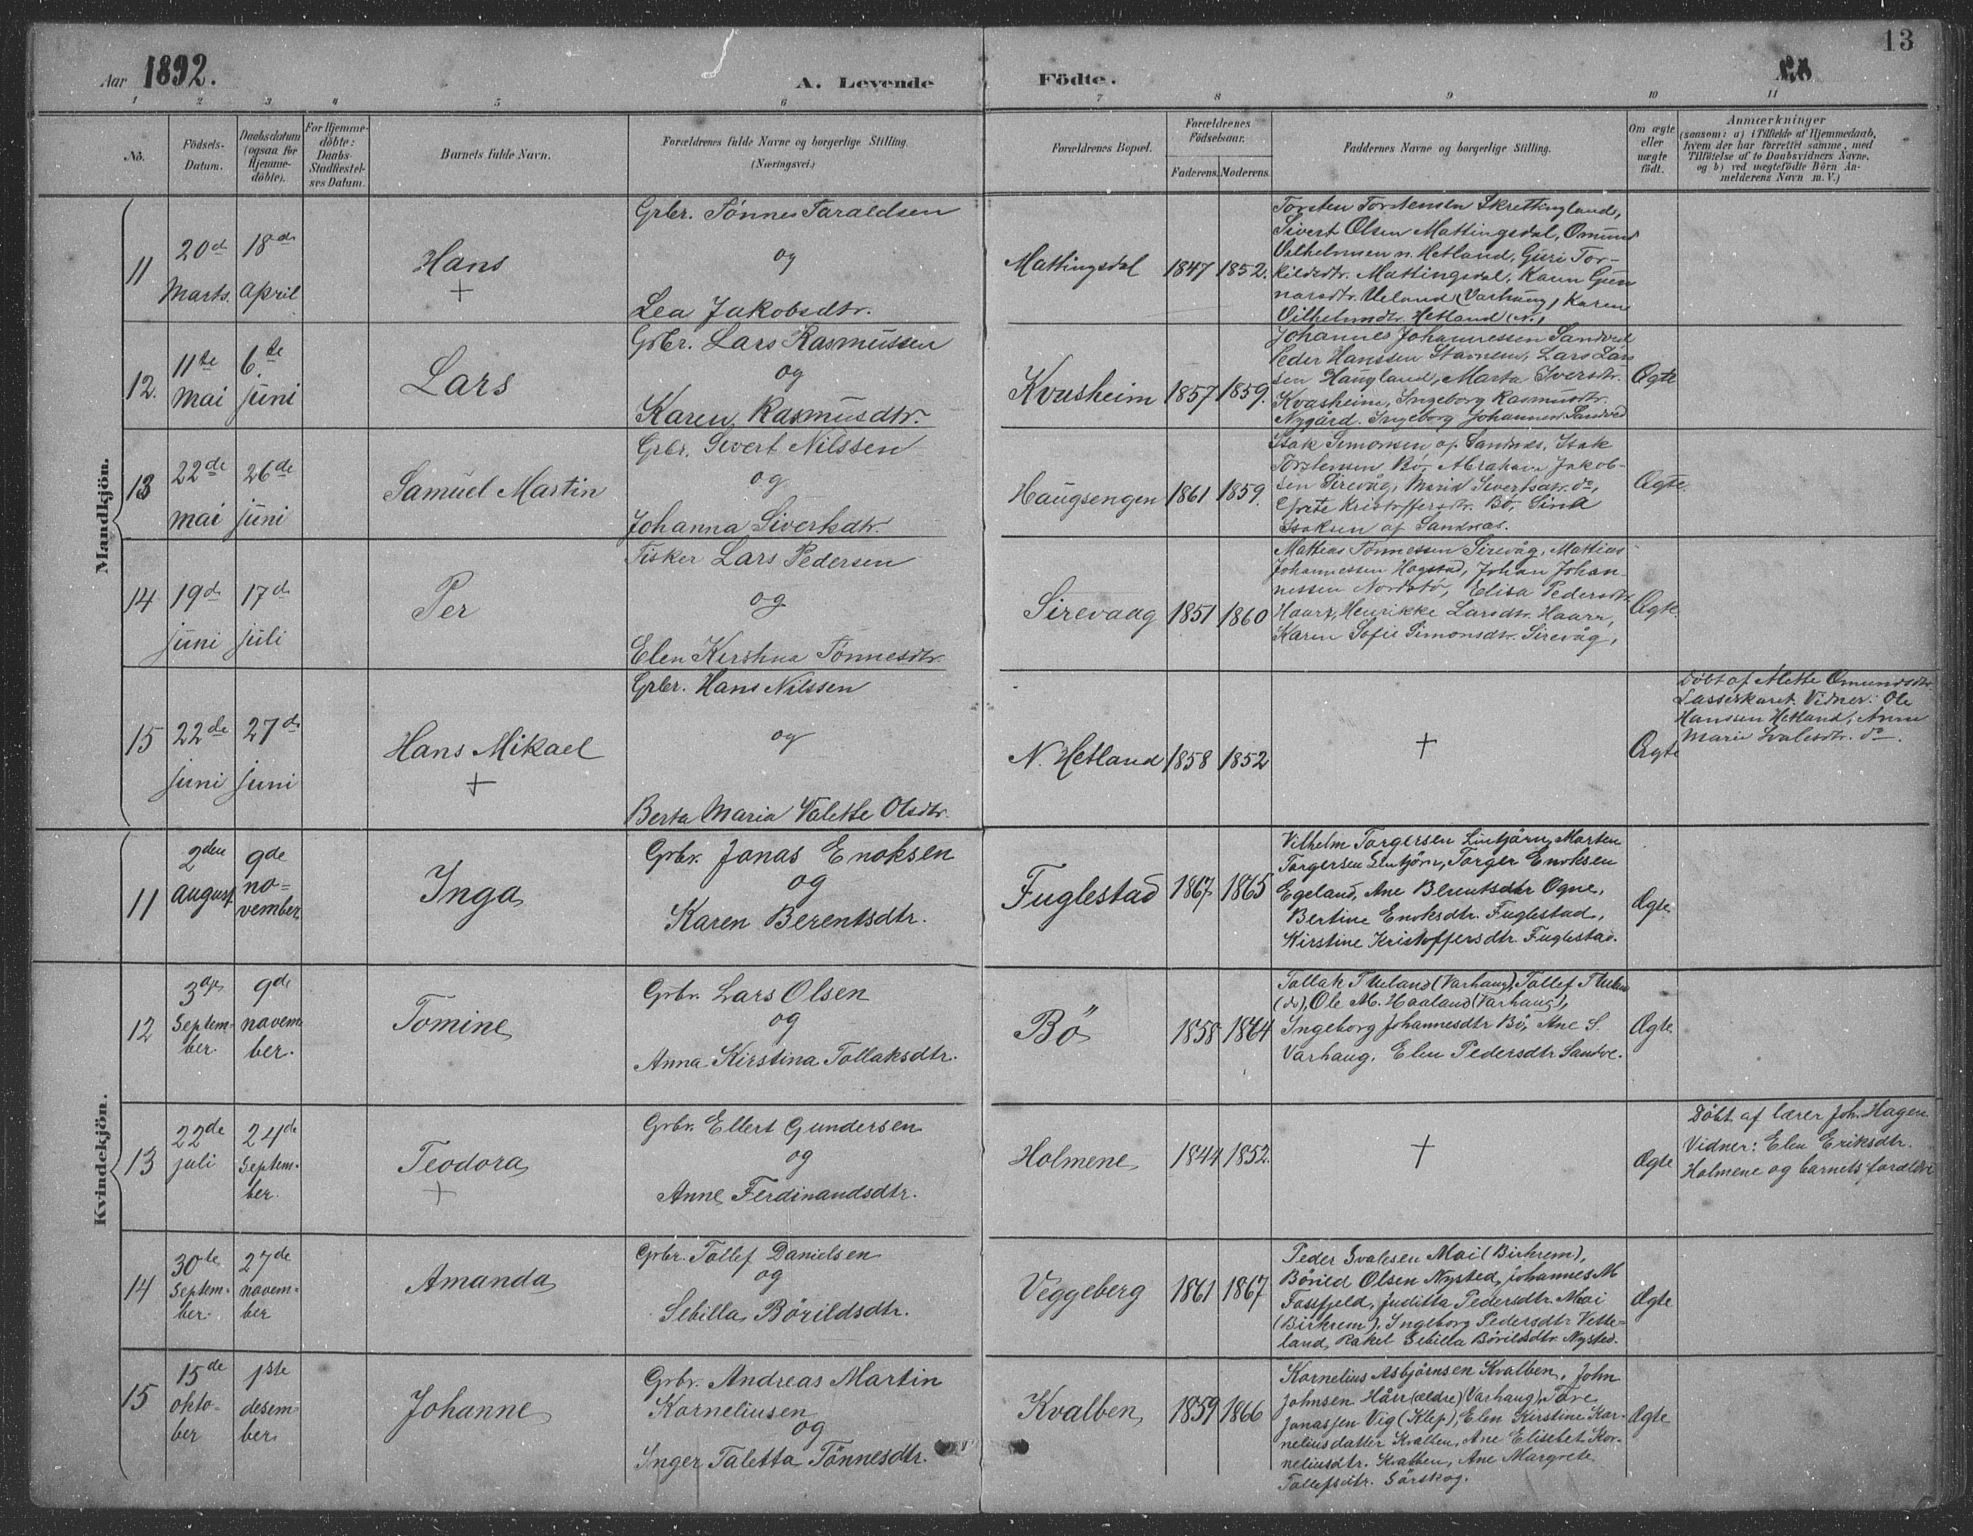 13
Aar 1892.
A. Levende Födte.
1 2 3 4 5 6 7 8 9 10 11
No.
Födsels-
Datum.
Daabsdatum
(ogsaa for
Hjemme-
döbte).
For Hjemme-
döbte:
Daabs-
Stadfæstel-
ses Datum.
Barnets fulde Navn.
Forældrenes fulde Navne og borgerlige Stilling.
(Næringsvei.)
Forældrenes Bopæl.
Forældrenes
Födselsaar.
Faderens. Moderens.
Faddernes Navne og borgerlige Stilling.
Om ægte
eller
uægte
födt.
Anmærkninger
(saasom: a) i Tilfælde af Hjemmedaab,
hvem der har forrettet samme, med
Tilföielse af to Daabsvidners Navne,
og b) ved uægtefödte Börn An-
melderens Navn m. V.)
Mandkjön.
11
20de
Marts.
18de
April
Hans
+
Grbr. Tønnes Taraldsen
og
Lea Jakobsdtr.
Mattingsdal
1847 1852.
Torsten Torstensen Skrettingland,
Sivert Olsen Mattingsdal, Omund
Vilhelmsen n. Hetland, Guri Tor-
kildsdtr. Mattingsdal, Karen Gun
narsdtr. Ueland (Varhaug) Karen
Vilhelmsdtr. Hetland (N.)
12.
11te
mai
6.te
juni
Lars
Grbr. Lars Rasmussen
og
Karen Rasmusdtr.
Kvasheim
1857 1859.
Johannes Johannessen Sandved
Peder Hanssen Stavnem, Lars Lars
sen Haugland, Marta Iversdtr.
Kvasheim, Ingeborg Rasmusdtr.
Nygård. Ingeborg Johannesd. Sandved
Ægte
13
22de
mai
26de
juni
Samuel Martin
Grbr. Sivert Nilssen
og
Johanna Sivertsdtr.
Haugsengen
1861 1859.
Isak Simonsen af Sandnæs, Isak
Torstensen Bø, Abraham Jakob-
sen Sirevåg, Maria Sivertsdtr. do,
Grete Kristoffersdtr. Bø, Sina
Isaksen af Sandnæs.
Ægte.
14
19de
juni
17de
juli
Per
Fisker Lars Pedersen
og
Elen Kirstina Tønnesdtr.
Sirevaag
1851 1860
Mattias Tønnessen Sirevåg, Mattias
Johannessen Hogstad, Johan Johan-
nessen Nordstø, Elisa Pedersdtr.
Haarr, Henrikke Larsdtr. Haarr,
Karen Sofie Simonsdtr. Sirevåg,
Ægte
15
22de
juni
27de
juni
Hans Mikael
+
Grbr. Hans Nilssen
og
Berta Maria Valette Olsdtr.
N. Hetland
1858 1852
+
Ægte
Døbt af Mette Omundsdtr.
Lasseskaret. Vidner: Ole
Hanssen Hetland, Anne
Marie Svalesdtr. do.
Kvindekjön.
11
2den
August
9de
no-
vember
Inga
Grbr. Jonas Enoksen
og
Karen Berentsdtr.
Fuglestad
1867 1865
Vilhelm Torgersen Lintjørn, Marten
Torgersen Lintjørn, Torger Enoksen
Egeland, Ane Berentsdtr Ogne,
Bertine Enoksdtr. Fuglestad,
Kirstine Kristoffersdtr. Fuglestad.
Ægte
12
3dje
Septem-
ber.
9de
novem-
ber.
Tomine
Grbr. Lars Olsen
og
Anna Kirstina Tollaksdtr.
Bø
1858 1864
Tollak T Ueland (Varhaug), Tollef T Ueland
(do), Ole M. Haaland (Varhaug),
Ingeborg Johannesdtr Bø, Ane S.
Varhaug. Elen Pedersdtr Sandve.
Ægte
13
22de
juli
24de
Septem-
ber.
Teodora
+
Grbr. Ellert Gundersen
og
Anne Ferdinandsdtr.
Holmene
1844 1852.
+
Ægte
Døbt af lærer Joh. Hagen
Vidner: Elen Eriksdtr.
Holmene og barnets forældre
14
30te
Septem-
ber.
27de
novem-
ber
Amanda
Grbr. Tollef Danielsen
og
Sebilla Børildsdtr.
Veggeberg
1861 1867
Peder Svalesen Mai (Birkrem),
Børild Olsen Nysted, Johannes M
Fossfjeld, Juditta Pedersdtr. Mai
(Birkrem), Ingeborg Pedersdtr Vette-
land, Rakel Sebilla Børildsdtr Nysted.
Ægte
15
15de
okto-
ber
1ste
desem-
ber.
Johanne
Grbr. Andreas Martin
Korneliusen
og
Inger Taletta Tønnesdtr.
Kvalben
1859 1866
Kornelius Asbjørnsen Kvalben, John
Johnsen Hårr (ældre) (Varhaug), Tore
Jonassen Vig (Klep), Elen Kirstine Kor-
neliusdatter Kvalben, Ane Elisebet Kor-
neliusdtr. Kvalben, Ane Margrete
Tollefsdtr. Sørskog.
Ægte